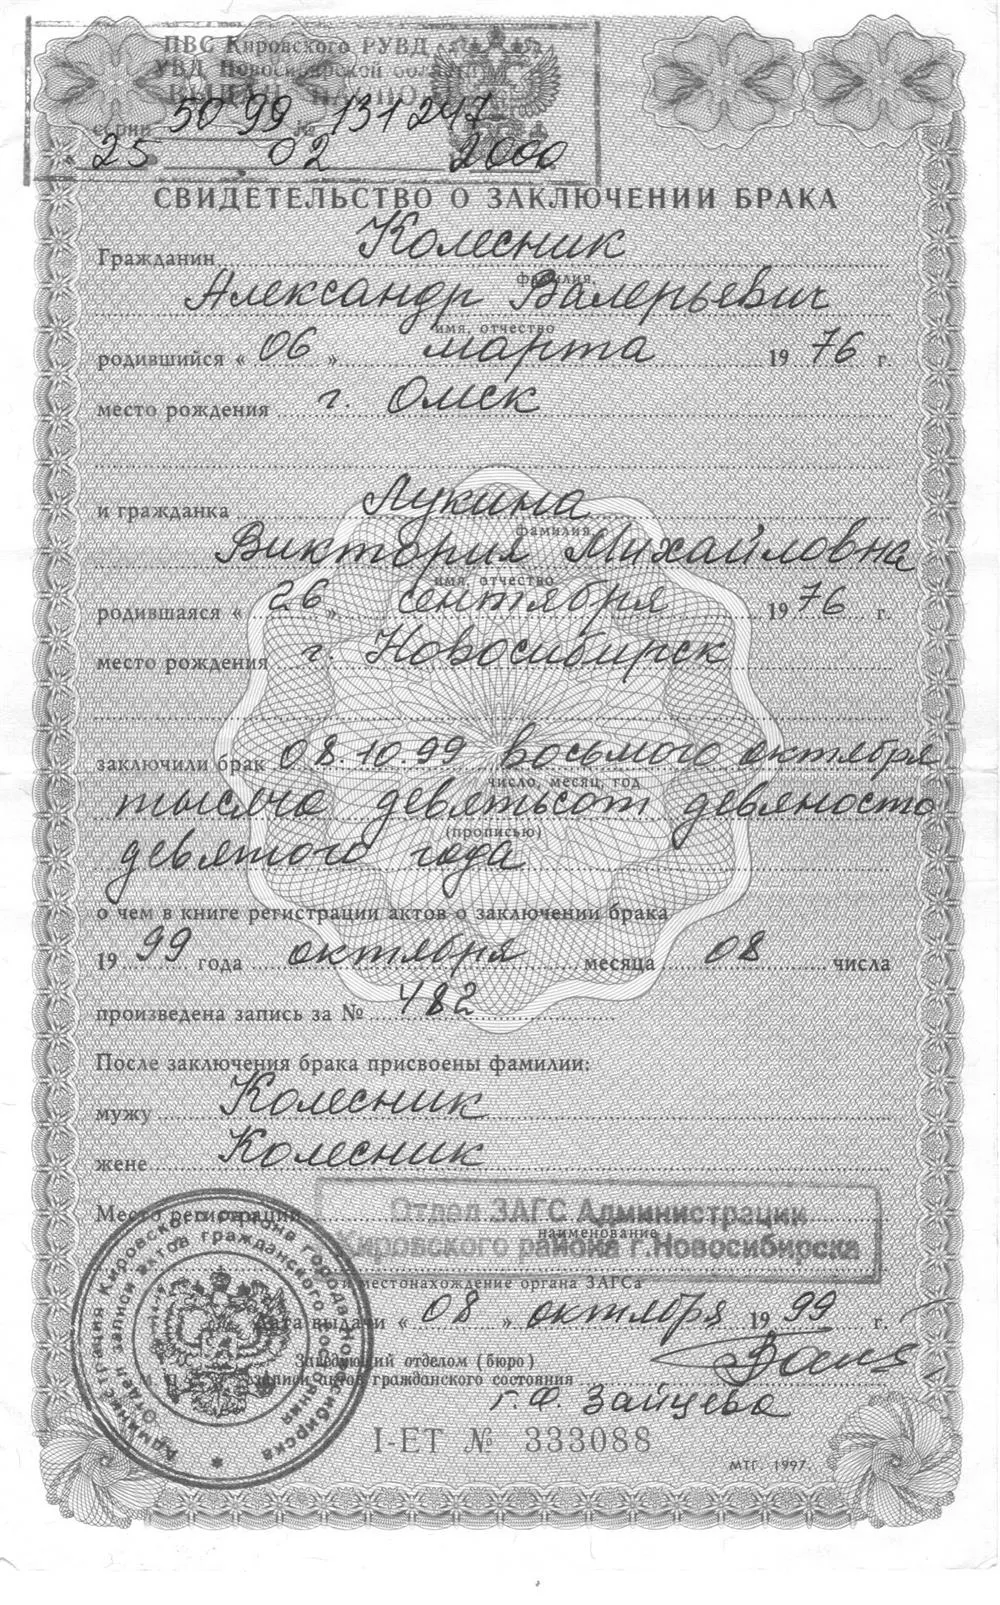 ПВС Кировского РУВД
УВД Новосибирской области
ВЫДАН ПАСПОРТ
серии 50 99 № 131247
25 02 2000
СВИДЕТЕЛЬСТВО О ЗАКЛЮЧЕНИИ БРАКА
Гражданин Колесник
фамилия,
Александр Валерьевич
имя, отчество
родившийся « 06 » марта 19 76 г.
место рождения г. Омск
и гражданка Лукина
фамилия
Виктория Михайловна
имя, отчество
родившаяся « 26 » сентября 19 76 г.
место рождения г. Новосибирск
заключили брак 08.10.99 восьмого октября
число, месяц, год
тысяча девятьсот девяносто
(прописью)
девятого года
о чем в книге регистрации актов о заключении брака
19 99 года октября месяца 08 числа
произведена запись за № 482
После заключения брака присвоены фамилии:
мужу Колесник
жене Колесник
Место регистрации Отдел ЗАГС Администрации
наименование
Кировского района г.Новосибирска
и местонахождение органа ЗАГСа
Дата выдачи « 08 » октября 19 99 г.
Заведующий отделом (бюро)
записи актов гражданского состояния
Г.Ф. Зайцева
I-ЕТ № 333088
МТГ. 1997.
Администрация Кировского района города Новосибирска
Отдел записи актов гражданского состояния